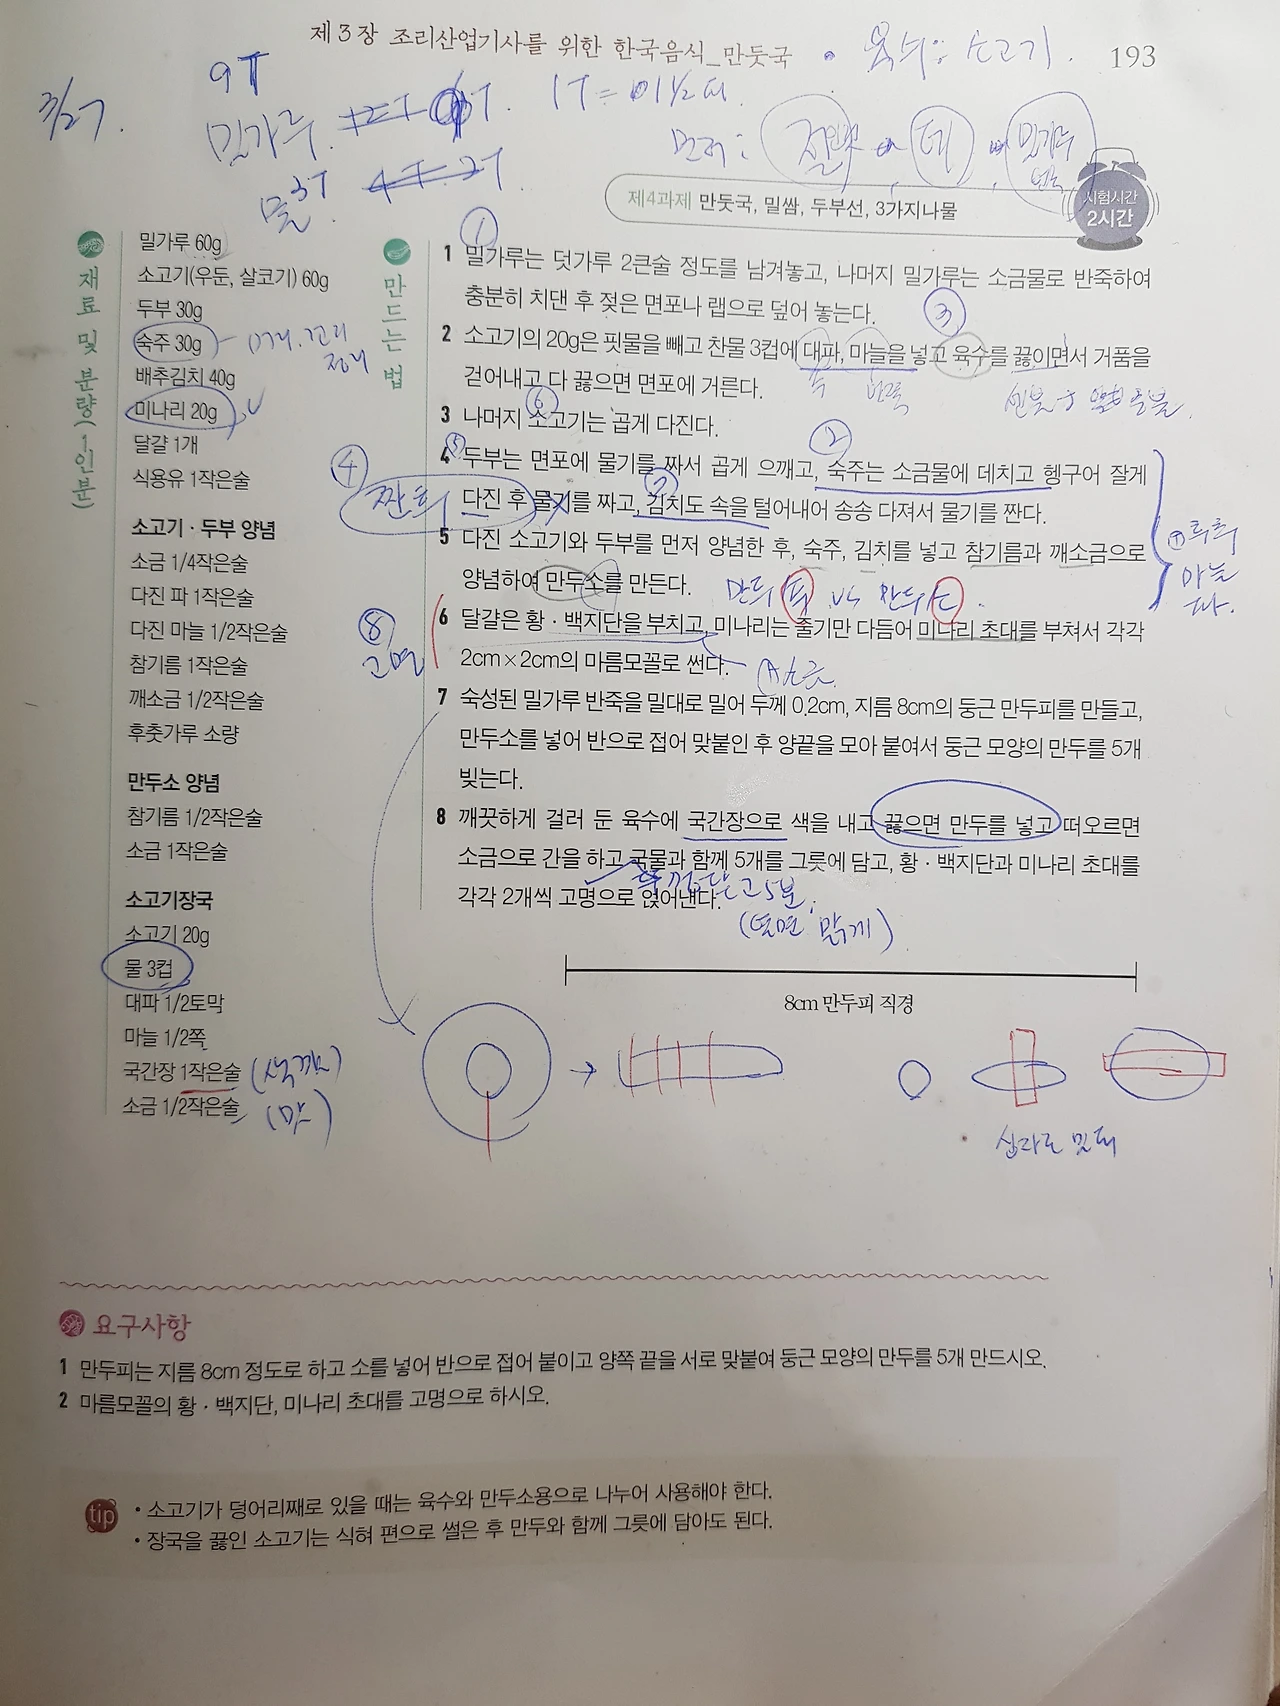 제 3 장 조리산업기사를 위한 한국음식_만둣국
193
육수: 소고기
3/27.
9T
밀가루
물 3T
제4과제 만둣국, 밀쌈, 두부선, 3가지나물
시험시간
2시간
재료 및 분량(1인분)
밀가루 60g
소고기(우둔, 살코기) 60g
두부 30g
숙주 30g
배추김치 40g
미나리 20g
달걀 1개
식용유 1작은술
소고기 · 두부 양념
소금 1/4작은술
다진 파 1작은술
다진 마늘 1/2작은술
참기름 1작은술
깨소금 1/2작은술
후춧가루 소량
만두소 양념
참기름 1/2작은술
소금 1작은술
소고기장국
소고기 20g
물 3컵
대파 1/2토막
마늘 1/2쪽
국간장 1작은술
소금 1/2작은술
만드는 법
①
1 밀가루는 덧가루 2큰술 정도를 남겨놓고, 나머지 밀가루는 소금물로 반죽하여
충분히 치댄 후 젖은 면포나 랩으로 덮어 놓는다.
③
2 소고기의 20g은 핏물을 빼고 찬물 3컵에 대파, 마늘을 넣고 육수를 끓이면서 거품을
걷어내고 다 끓으면 면포에 거른다.
⑥
3 나머지 소고기는 곱게 다진다.
②
④
⑤
4 두부는 면포에 물기를 짜서 곱게 으깨고, 숙주는 소금물에 데치고 헹구어 잘게
다진 후 물기를 짜고, 김치도 속을 털어내어 송송 다져서 물기를 짠다.
⑦
짠 후
5 다진 소고기와 두부를 먼저 양념한 후, 숙주, 김치를 넣고 참기름과 깨소금으로
양념하여 만두소를 만든다.
후추
마늘
파.
⑧
고명
6 달걀은 황 · 백지단을 부치고, 미나리는 줄기만 다듬어 미나리 초대를 부쳐서 각각
2cm×2cm의 마름모꼴로 썬다.
7 숙성된 밀가루 반죽을 밀대로 밀어 두께 0.2cm, 지름 8cm의 둥근 만두피를 만들고,
만두소를 넣어 반으로 접어 맞붙인 후 양끝을 모아 붙여서 둥근 모양의 만두를 5개
빚는다.
8 깨끗하게 걸러 둔 육수에 국간장으로 색을 내고 끓으면 만두를 넣고 떠오르면
소금으로 간을 하고 국물과 함께 5개를 그릇에 담고, 황 · 백지단과 미나리 초대를
각각 2개씩 고명으로 얹어낸다.
8cm 만두피 직경
요구사항
1 만두피는 지름 8cm 정도로 하고 소를 넣어 반으로 접어 붙이고 양쪽 끝을 서로 맞붙여 둥근 모양의 만두를 5개 만드시오.
2 마름모꼴의 황 · 백지단, 미나리 초대를 고명으로 하시오.
tip
• 소고기가 덩어리째로 있을 때는 육수와 만두소용으로 나누어 사용해야 한다.
• 장국을 끓인 소고기는 식혀 편으로 썰은 후 만두와 함께 그릇에 담아도 된다.